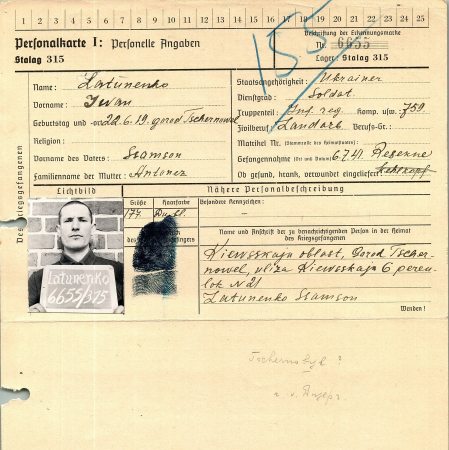 1 2 3 4 5 6 7 8 9 10 11 12 13 14 15 16 17 18 19 20 21 22 23 24 25
155
Personalkarte I: Personelle Angaben
Stalag 315
Beschriftung der Erkennungsmarke
Nr. 6655
Lager: Stalag 315
Des Kriegsgefangenen
Name: Latunenko
Vorname: Iwan
Geburtstag und -ort: 22.6.19. gorod Tschernowel
Religion:
Vorname des Vaters: Ssamson
Familienname der Mutter:
Staatsangehörigkeit: Ukrainer
Dienstgrad: Soldat
Truppenteil: Inf. reg. Komp. usw. 759
Zivilberuf: Landarb. Berufs-Gr.:
Matrikel Nr. (Stammrolle des Heimatstaates):
Gefangennahme (Ort und Datum): 6.7.41
Ob gesund, krank, verwundet eingeliefert:
Lichtbild
Nähere Personalbeschreibung
Größe
Haarfarbe
Besondere Kennzeichen:
177
Dunkl.
Name und Anschrift der zu benachrichtigenden Person in der Heimat
des Kriegsgefangenen
Kiewsskaja oblast, Gorod Tscher-
nowel, uliza Kiewsskaja 6 pereu-
lok N 21
Latunenko Ssamson
Wenden!
Latunenko
6655/315
Tschernobyl ?